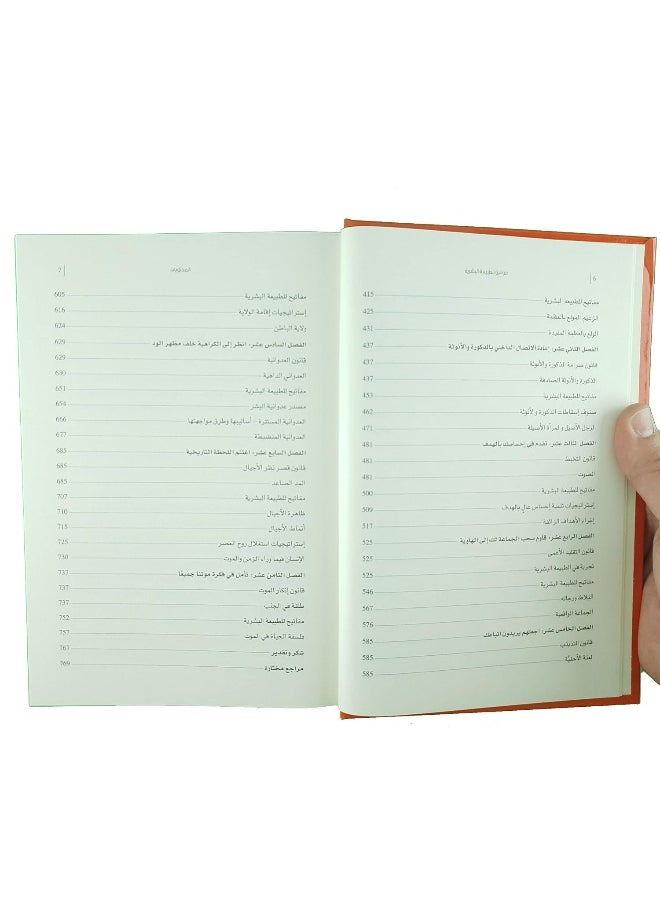 6
قوانين الطبيعة البشرية
مفاتيح للطبيعة البشرية 415
الزعيم المولع بالعظمة 425
المولع بالعظمة المفيدة 431
الفصل الثاني عشر، إعادة الاتصال الداخلي بالذكورة والأنوثة 437
قانون صرامة الذكورة والأنوثة 437
الذكورة والأنوثة الصادقة 437
مفاتيح للطبيعة البشرية 453
صنوف إسقاطات الذكورة والأنوثة 462
الرجل الأصيل والمرأة الأصيلة 471
الفصل الثالث عشر، تقدم في إحساسك بالهدف 481
قانون التخبط 481
الصوت 481
مفاتيح للطبيعة البشرية 500
إستراتيجيات تنمية إحساس عالٍ بالهدف 509
إغراء الأهداف الزائفة 517
الفصل الرابع عشر، قاوم سحب الجماعة لك إلى الهاوية 525
قانون التقليد الأعمى 525
تجربة في الطبيعة البشرية 525
مفاتيح للطبيعة البشرية 546
البلاط ورجاله 567
الجماعة الواقعية 576
الفصل الخامس عشر، اجعلهم يريدون اتباعك 585
قانون التذبذب 585
لعنة الأحقيّة 585
المحتويات
7
مفاتيح للطبيعة البشرية 605
إستراتيجيات إقامة الولاية 616
ولاية الباطن 624
الفصل السادس عشر، انظر إلى الكراهية خلف مظهر الود 629
قانون العدوانية 629
العدواني الداهية 630
مفاتيح للطبيعة البشرية 651
مصدر عدوانية البشر 654
العدوانية المستترة – أساليبها وطرق مواجهتها 666
العدوانية المنضبطة 677
الفصل السابع عشر، اغتنم اللحظة التاريخية 685
قانون قصر نظر الأجيال 685
المد الصاعد 685
مفاتيح للطبيعة البشرية 707
ظاهرة الأجيال 710
أنماط الأجيال 715
إستراتيجيات استغلال روح العصر 725
الإنسان فيما وراء الزمن والموت 730
الفصل الثامن عشر، تأمل في فكرة موتنا جميعًا 737
قانون إنكار الموت 737
طلقة في الجنب 737
مفاتيح للطبيعة البشرية 752
فلسفة الحياة في الموت 757
شكر وتقدير 767
مراجع مختارة 769